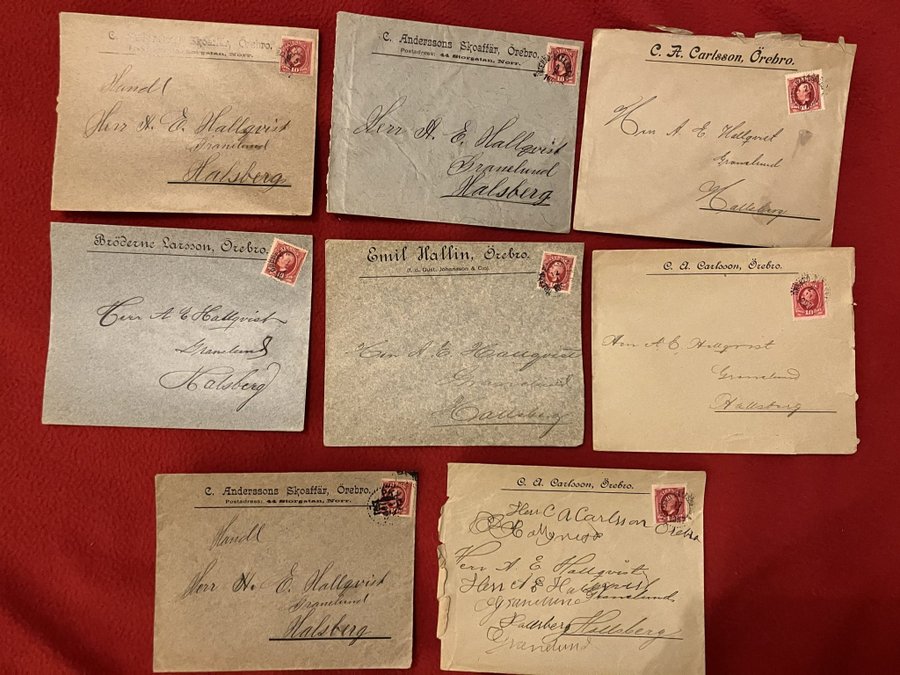 C. Anderssons Skoaffär, Örebro.
Storgatan, Norr.
Handl
Herr A. E. Hallqvist
Granelund
Halsberg
C. Anderssons Skoaffär, Örebro.
Postadress: 44 Storgatan, Norr.
Herr A. E. Hallqvist
Granelund
Halsberg
C. A. Carlsson, Örebro.
Herr A E Hallqvist
Granelund
Hallsberg
Bröderne Larsson, Örebro.
Herr A E Hallqvist
Granelund
Halsberg
Emil Hallin, Örebro.
(f. d. Gust. Johansson & Co).
Herr A. E. Hallqvist
Granelund
Hallsberg
C. A. Carlsson, Örebro.
10
Herr A E Hallqvist
Granelund
Hallsberg
C. Anderssons Skoaffär, Örebro.
Postadress: 44 Storgatan, Norr.
Handl
Herr A. E. Hallqvist
Granelund
Halsberg
C. A. Carlsson, Örebro.
Herr C A Carlsson Örebro
Herr A. E. Hallqvist
Herr A E
Granelund.
Hallsberg
Granelund